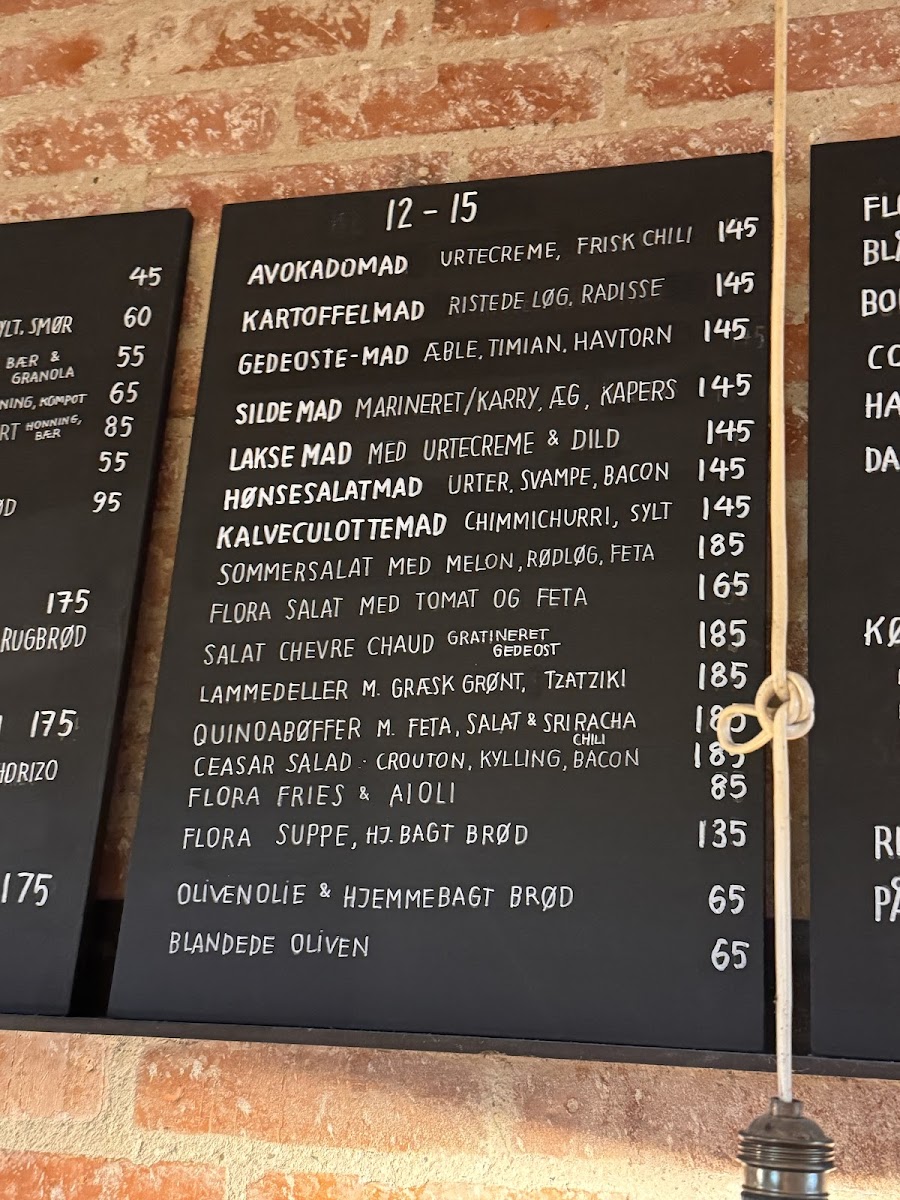 45
YLT, SMØR 60
BÆR & GRANOLA 55
NING, KOMPOT 65
RT HONNING, BÆR 85
55
ØD 95
175
RUGBRØD
175
HORIZO
175
12 - 15
AVOKADOMAD URTECREME, FRISK CHILI 145
KARTOFFELMAD RISTEDE LØG, RADISSE 145
GEDEOSTE-MAD ÆBLE, TIMIAN, HAVTORN 145
SILDE MAD MARINERET/KARRY, ÆG, KAPERS 145
LAKSE MAD MED URTECREME & DILD 145
HØNSESALATMAD URTER, SVAMPE, BACON 145
KALVECULOTTEMAD CHIMMICHURRI, SYLT 145
SOMMERSALAT MED MELON, RØDLØG, FETA 185
FLORA SALAT MED TOMAT OG FETA 165
SALAT CHEVRE CHAUD GRATINERET GEDEOST 185
LAMMEDELLER M. GRÆSK GRØNT, TZATZIKI 185
QUINOABØFFER M. FETA, SALAT & SRIRACHA CHILI
CEASAR SALAD · CROUTON, KYLLING, BACON 185
FLORA FRIES & AIOLI 85
FLORA SUPPE, HJ. BAGT BRØD 135
OLIVENOLIE & HJEMMEBAGT BRØD 65
BLANDEDE OLIVEN 65
FL
BLÅ
BO
CO
HA
DA
KØ
RI
PÅ